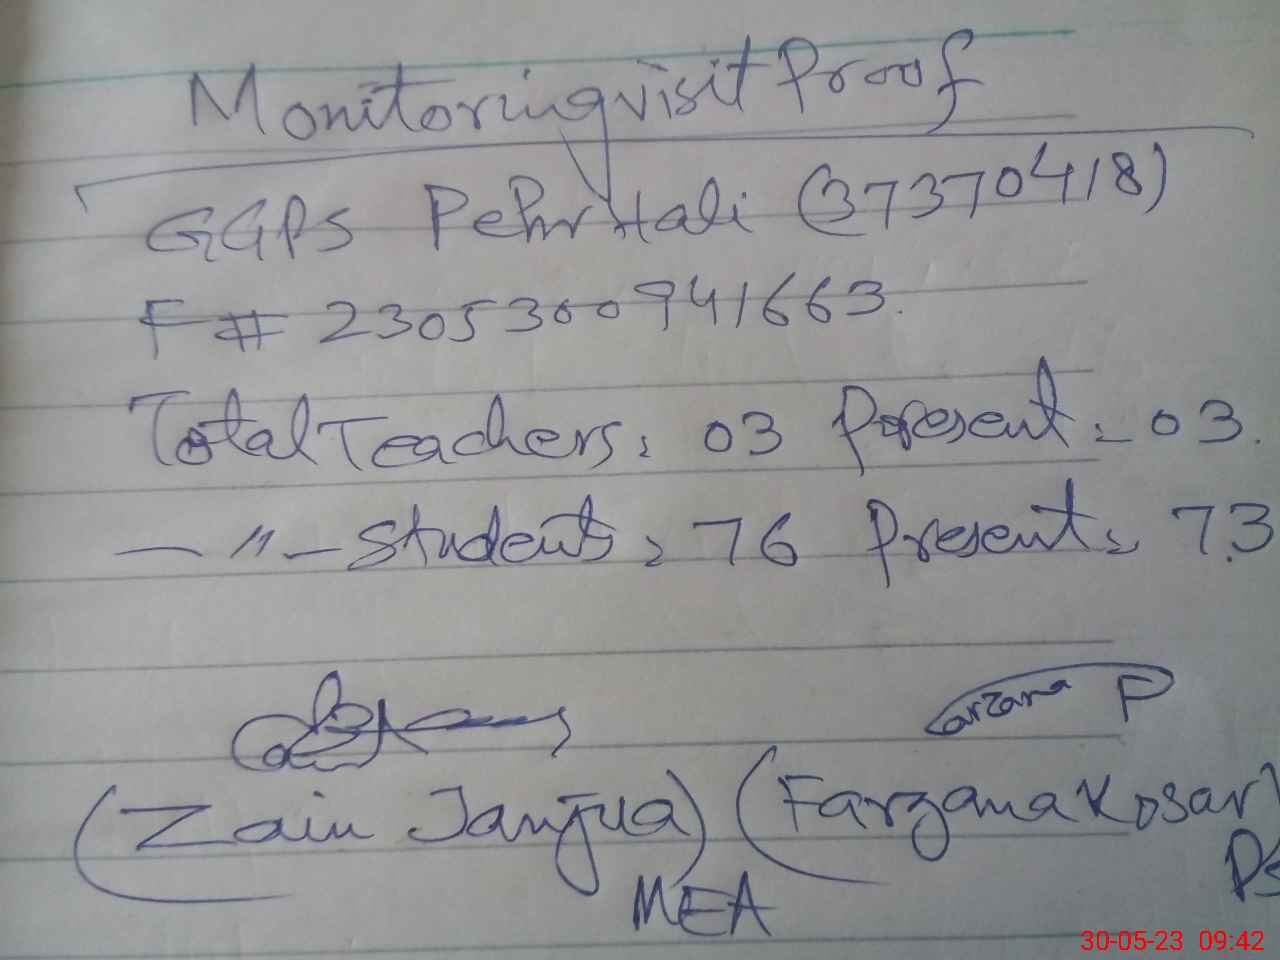 Monitoring visit Proof
GGPS Pehr Hali (37370418)
F # 2305300941663.
Total Teachers: 03 Present: 03.
— " — Students: 76 Present: 73
arzana P
(Zain Janjua) (Farzana Kosar)
MEA
30-05-23 09:42